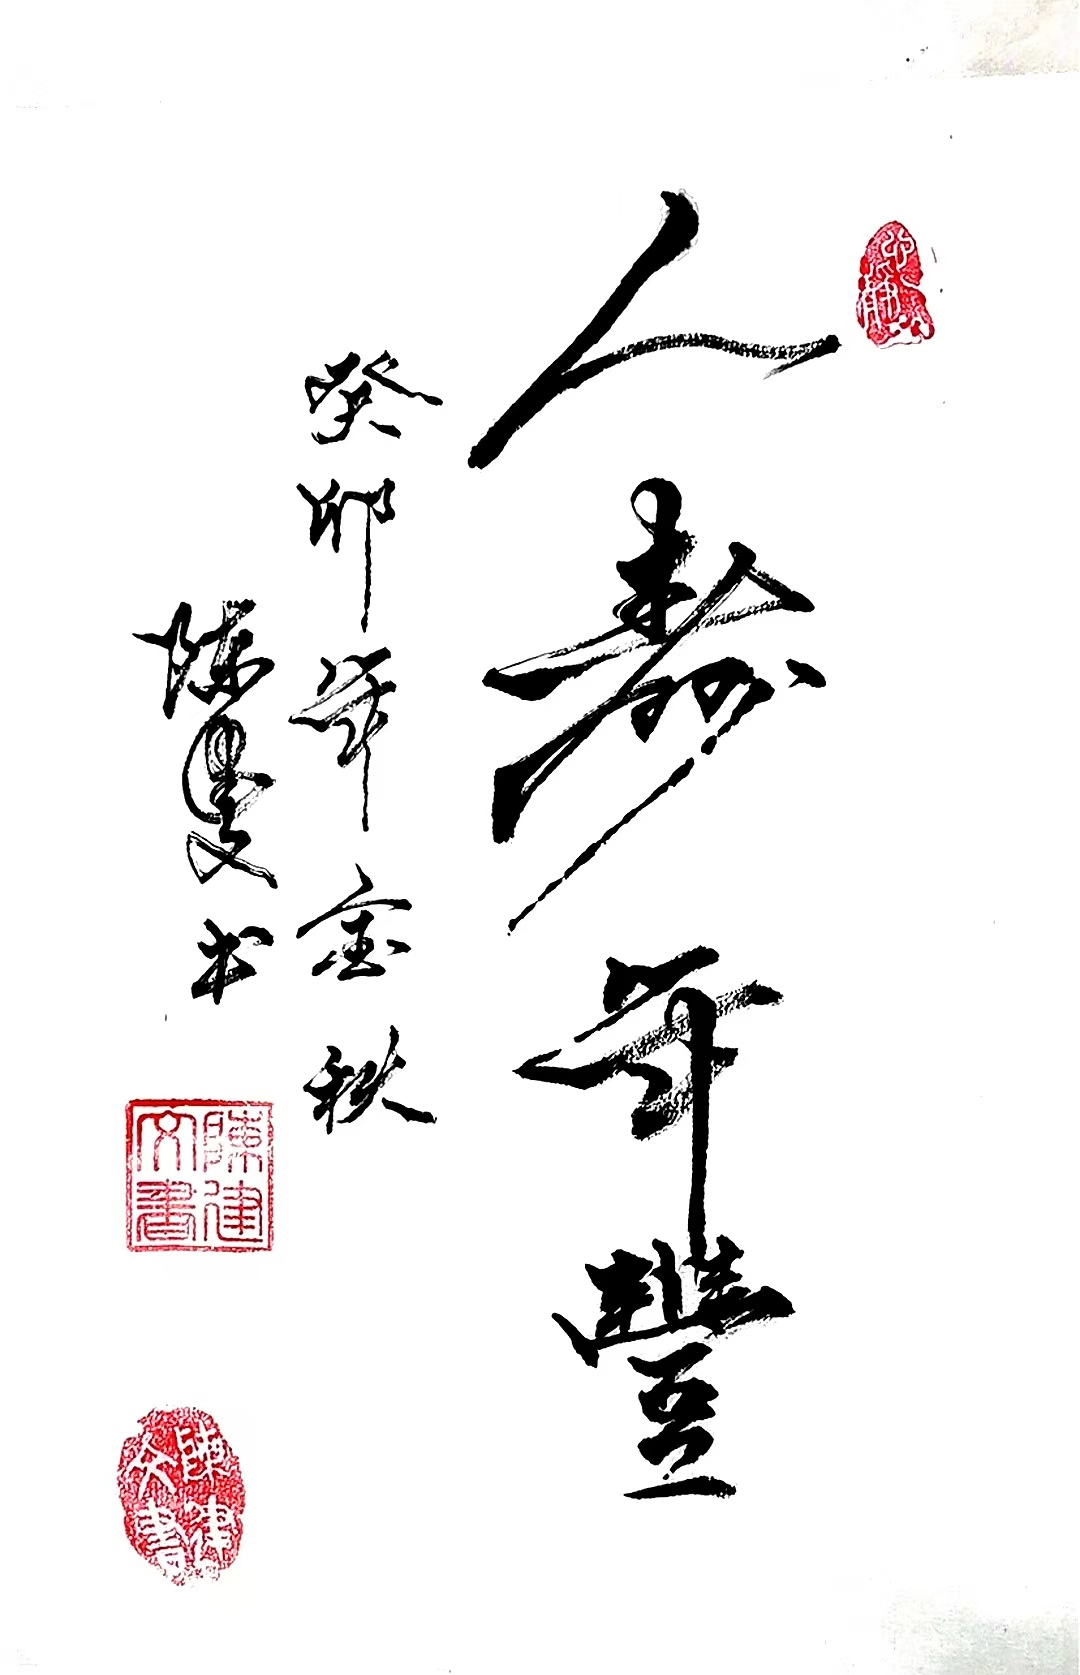 人壽年豐
癸卯年金秋
陈建文书
陳建文書
陳建文書